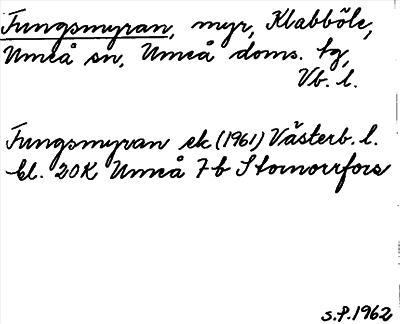 Tungsmyran, myr, Klabböle,
Umeå sn, Umeå doms. tg,
Vb. l.
Tungsmyran ek (1961) Västerb. l.
bl. 20K Umeå 7b Stornorrfors
S.P. 1962